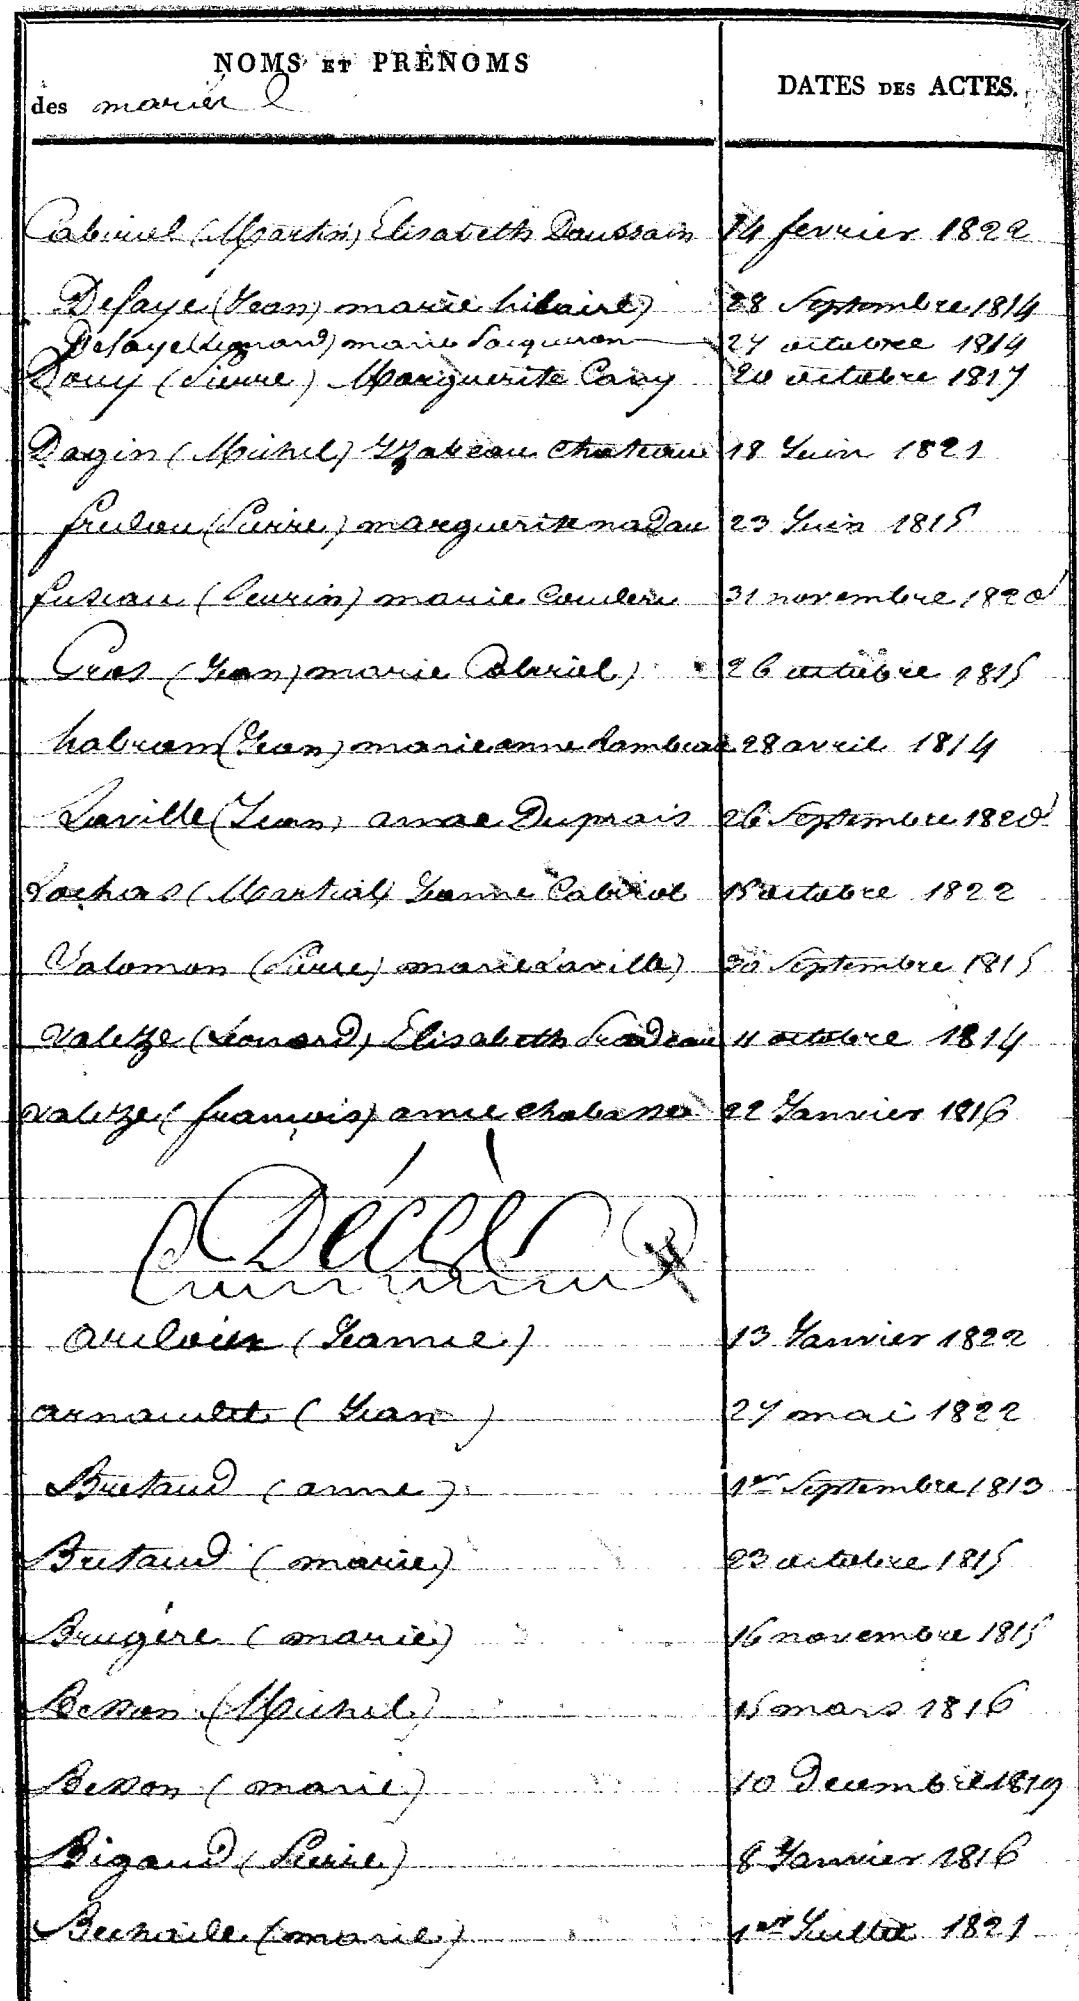 NOMS ET PRÉNOMS
des mariés
DATES DES ACTES.
Cabiriel (Martin) Elisabeth Doussain 14 fevrier 1822
Defaye (Jean) marie hilaire) 28 Septembre 1814
Defaye (Leonard) marie 27 octobre 1814
Douy (Pierre) Marguerite Cany 20 octobre 1817
Dagin (Michel) Yzabeau Chateau 18 Juin 1821
(Pierre) marguerite nadau 23 Juin 1815
fuseau (Seurin) marie 31 novembre 1820
Gros (Jean) marie Cabriel) 26 octobre 1815
habram (Jean) marie anne Lambeau 28 avril 1814
Laville (Jean) anne Duprais 26 Septembre 1820
Lachas (Martial) Jeanne Cabirol 15 octobre 1822
Valomon (Pierre) marie Laville) 30 Septembre 1815
Valetze (Leonard) Elisabeth Pradeau 11 octobre 1814
Valetze (françois) anne 22 Janvier 1816
Décès
(Jeanne) 13 Janvier 1822
arnaudet (Jean) 27 mai 1822
Bretaud (anne) 1er Septembre 1813
Bretaud (marie) 23 octobre 1815
Brugère (marie) 16 novembre 1815
Besson (Michel) 15 mars 1816
Besson (marie) 10 Decembre 1819
Bigaud (Pierre) 8 Janvier 1816
Bechaile (marie) 1er Juillet 1821